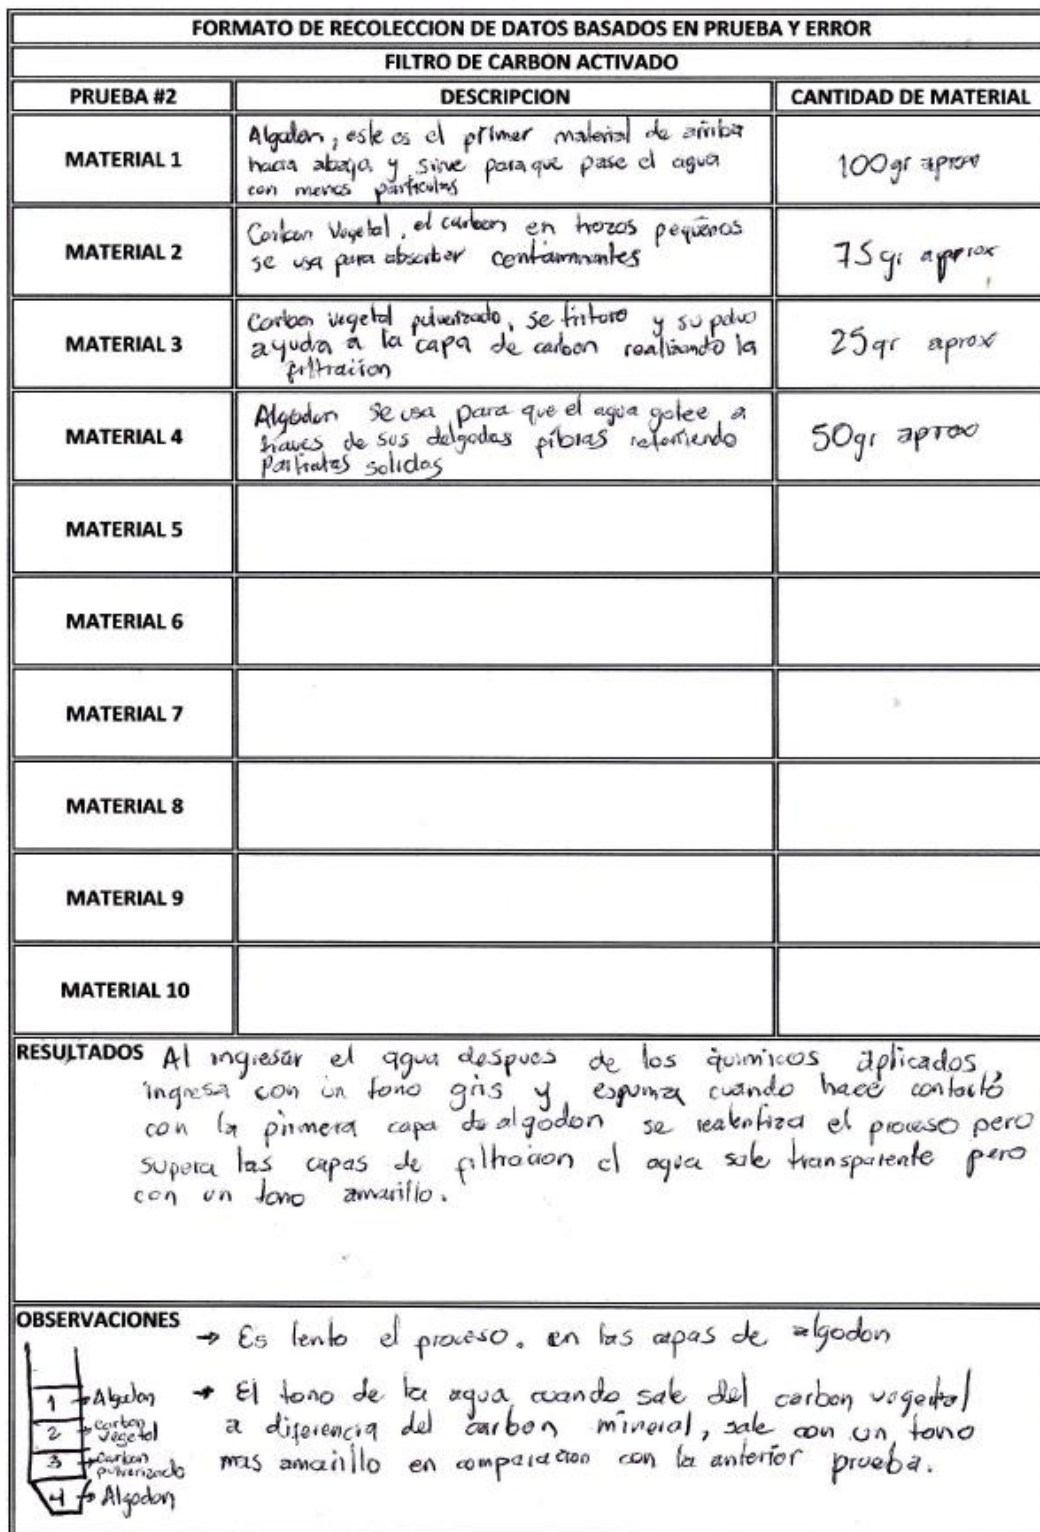 FORMATO DE RECOLECCION DE DATOS BASADOS EN PRUEBA Y ERROR
FILTRO DE CARBON ACTIVADO
PRUEBA #2 DESCRIPCION CANTIDAD DE MATERIAL
MATERIAL 1
Algodon, este es el primer material de arriba
hacia abajo, y sirve para que pase el agua
con menos particulas
100gr aprox
MATERIAL 2
Carbon Vegetal, el carbon en trozos pequeños
se usa para absorber contaminantes
75gr aprox
MATERIAL 3
Carbon vegetal pulverizado, se tritura y su polvo
ayuda a la capa de carbon realizando la
filtracion
25gr aprox
MATERIAL 4
Algodon se usa para que el agua gotee a
traves de sus delgadas fibras reteniendo
particulas solidas
50gr aprox
MATERIAL 5
MATERIAL 6
MATERIAL 7
MATERIAL 8
MATERIAL 9
MATERIAL 10
RESULTADOS Al ingresar el agua despues de los quimicos aplicados,
ingresa con un tono gris y espumza cuando hace contacto
con la primera capa de algodon se realentiza el proceso pero
supera las capas de filtracion el agua sale transparente pero
con un tono amarillo.
OBSERVACIONES → Es lento el proceso. en las capas de algodon
→ El tono de la agua cuando sale del carbon vegetal
a diferencia del carbon mineral, sale con un tono
mas amarillo en comparacion con la anterior prueba.
1 → Algodon
2 → carbon vegetal
3 → carbon pulverizado
4 → Algodon